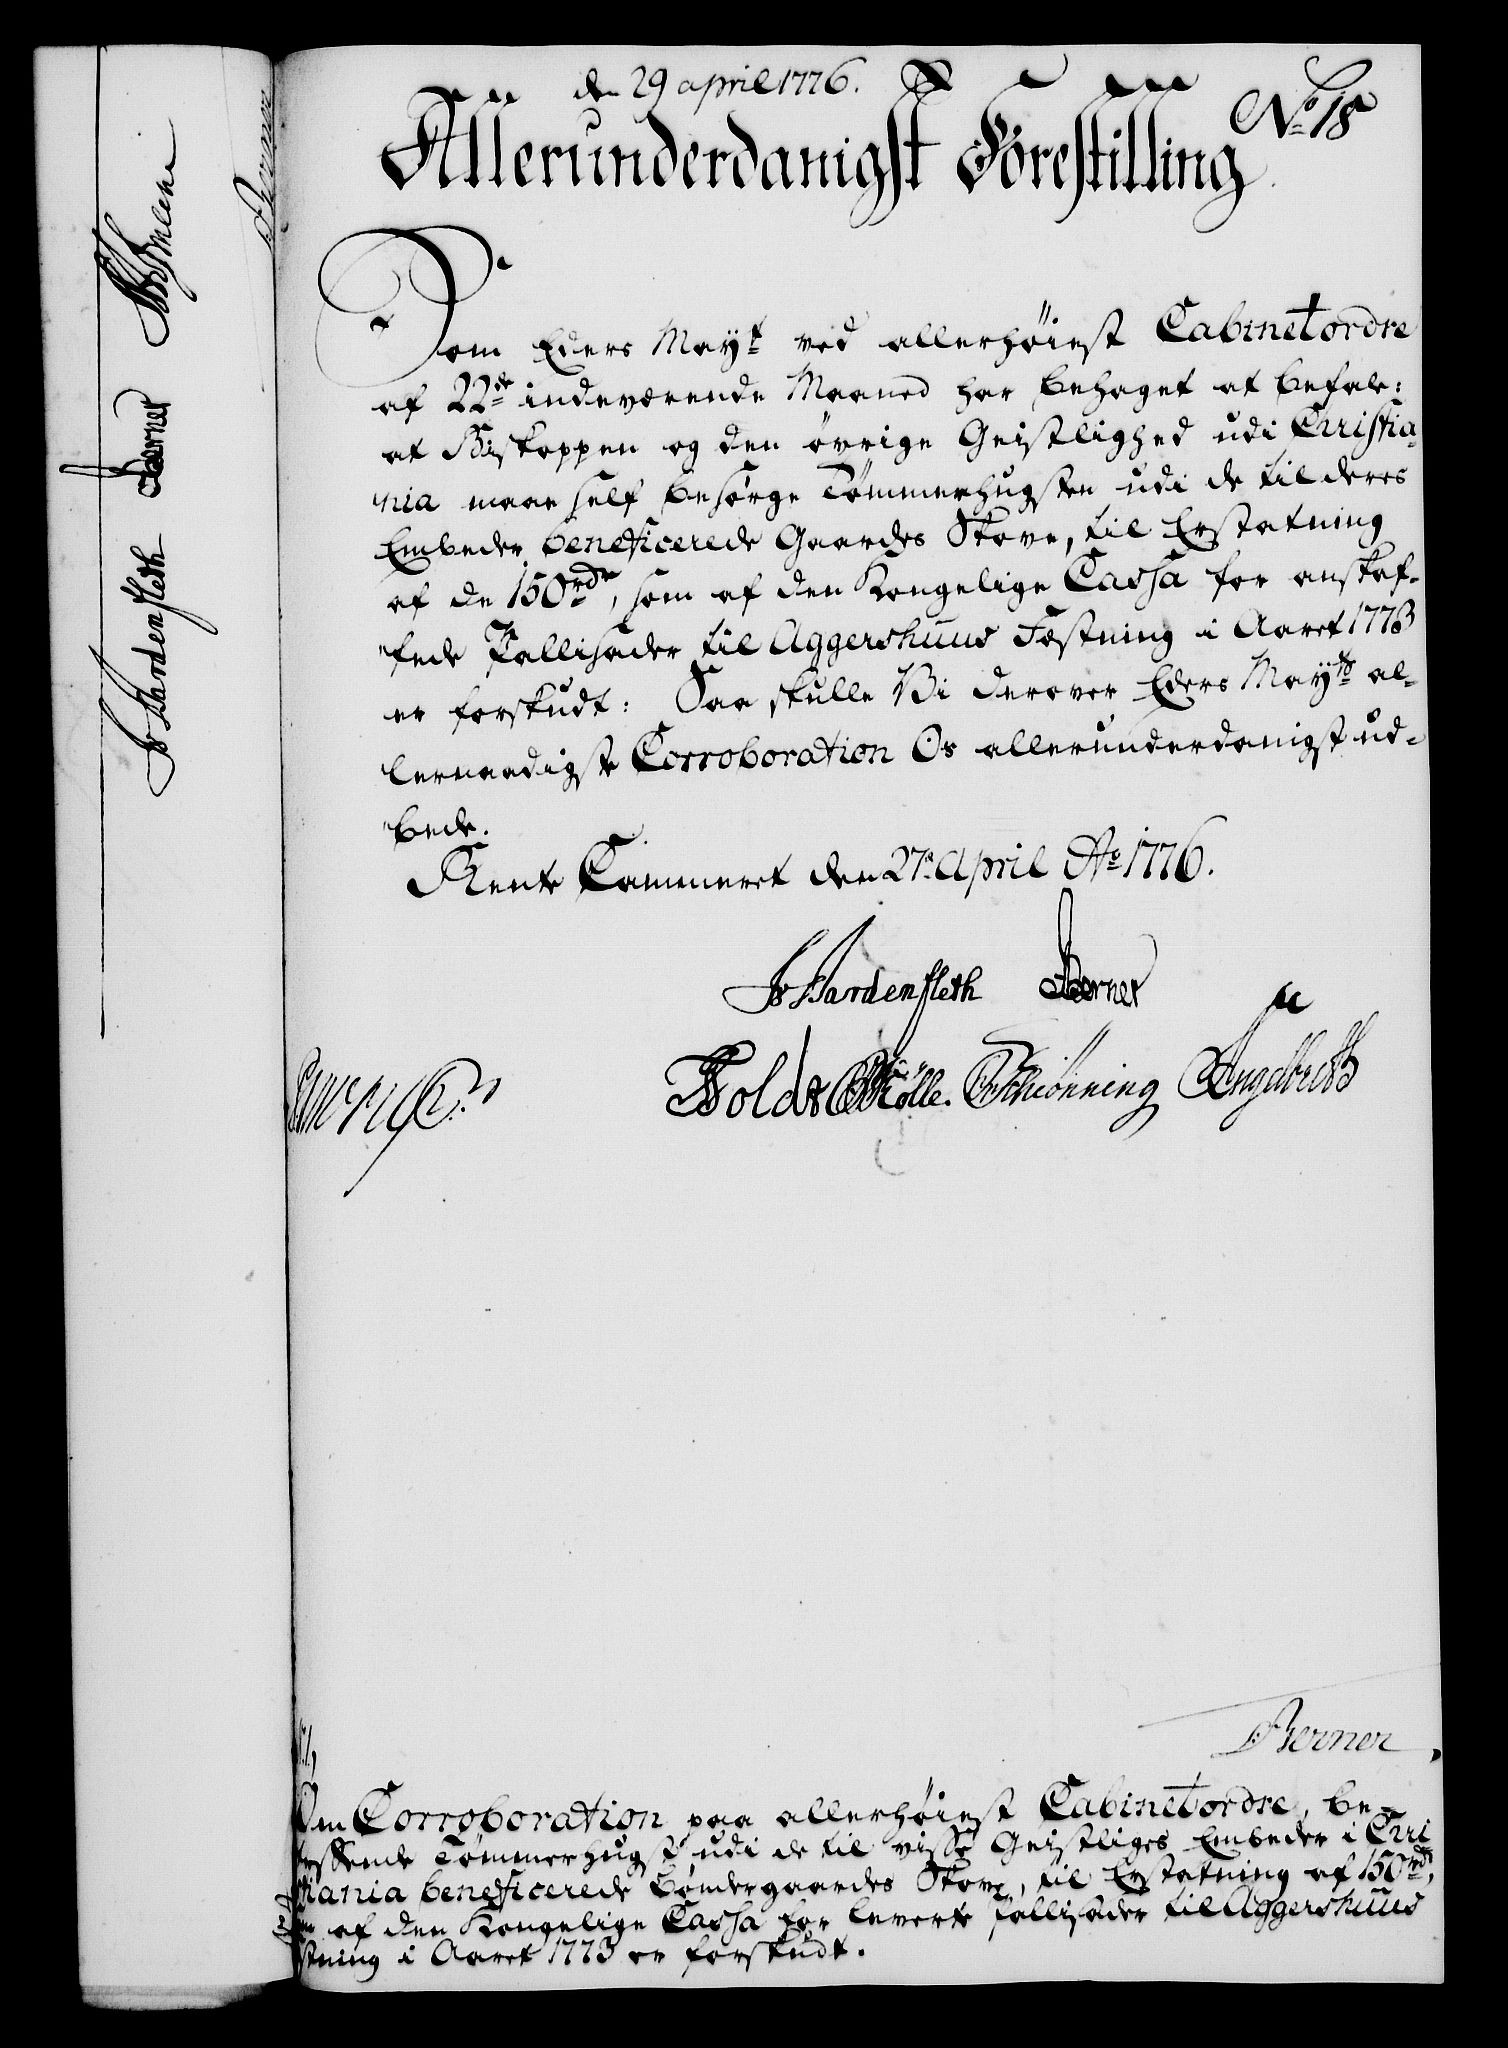 den 29 april 1776.
No 18
Allerunderdanigst Forestilling.
Som Eders Mayt ved allerhöiest Cabinetordre
af 22de indeværende Maaned har behaget at befale:
at Biskoppen og den övrige Geistlighed udi Christia-
nia maae self besørge Tømmerhugsten udi de til deres
Embeder beneficerede Gaardes Skove, til Erstatning
af de 150rdr, som af den Kongelige Cassa for anskaf-
fede Pallisader til Aggershuus Fæstning i Aaret 1773
er forskudt: Saa skulle Vi derover Eders Mayts al-
lernaadigste Corroboration Os allerunderdanigst ud-
bede.
Rente Cammeret den 27e April Ao 1776.
JvHardenfleth Berner
Holdt Rølle. Schiönning Engelbreth
Berner
Om Corroboration paa allerhöiest Cabinetordre, be-
treffende Tømmerhugst udi de til visse Geistliges Embeder i Chri
stiania beneficerede Bøndergaardes Skove, til Erstatning af 150rdr,
af den Kongelige Cassa for leverte Pallisader til Aggershuus
stning i Aaret 1773 er forskudt.
JvHardenfleth Berner
Berner